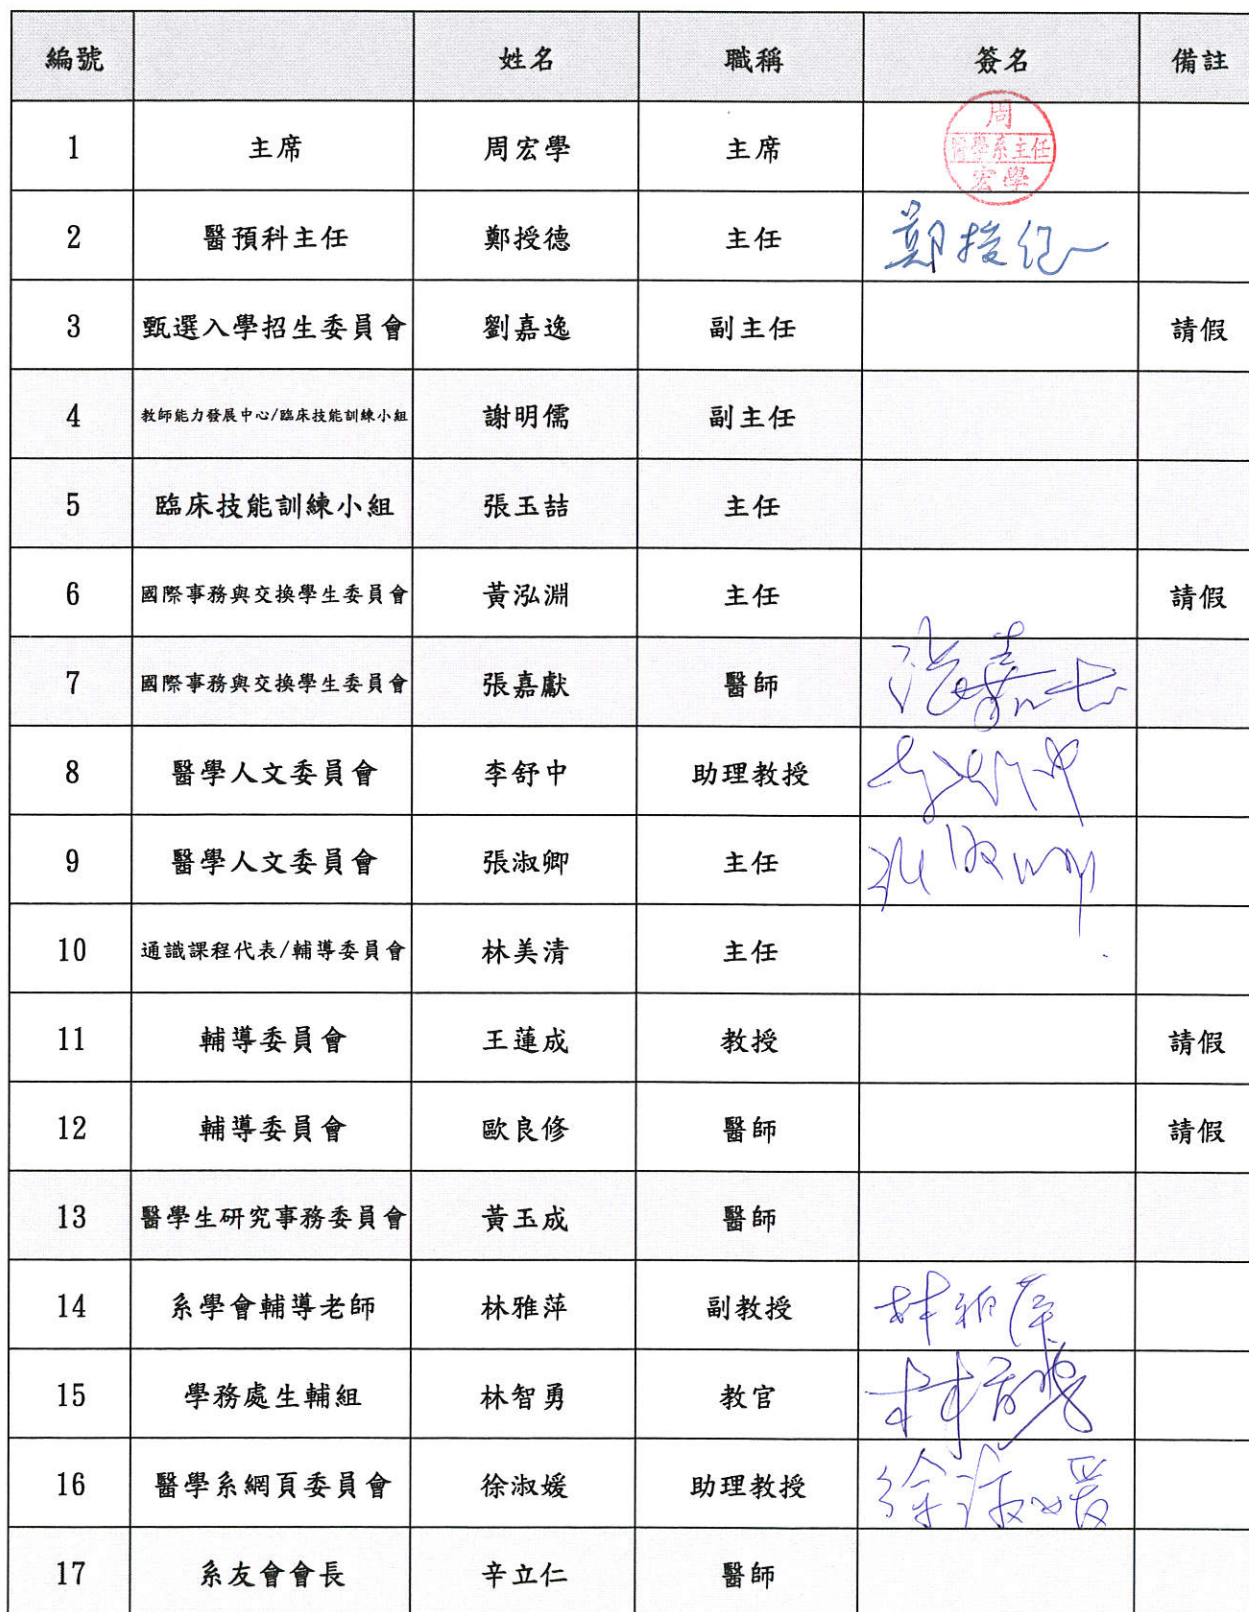 編號 姓名 職稱 簽名 備註
1 主席 周宏學 主席 周 醫學系主任 宏學
2 醫預科主任 鄭授德 主任 鄭授德
3 甄選入學招生委員會 劉嘉逸 副主任 請假
4 教師能力發展中心/臨床技能訓練小組 謝明儒 副主任
5 臨床技能訓練小組 張玉喆 主任
6 國際事務與交換學生委員會 黃泓淵 主任 請假
7 國際事務與交換學生委員會 張嘉獻 醫師
8 醫學人文委員會 李舒中 助理教授 李舒中
9 醫學人文委員會 張淑卿 主任 張淑卿
10 通識課程代表/輔導委員會 林美清 主任
11 輔導委員會 王蓮成 教授 請假
12 輔導委員會 歐良修 醫師 請假
13 醫學生研究事務委員會 黃玉成 醫師
14 系學會輔導老師 林雅萍 副教授 林雅萍
15 學務處生輔組 林智勇 教官
16 醫學系網頁委員會 徐淑媛 助理教授 徐淑媛
17 系友會會長 辛立仁 醫師